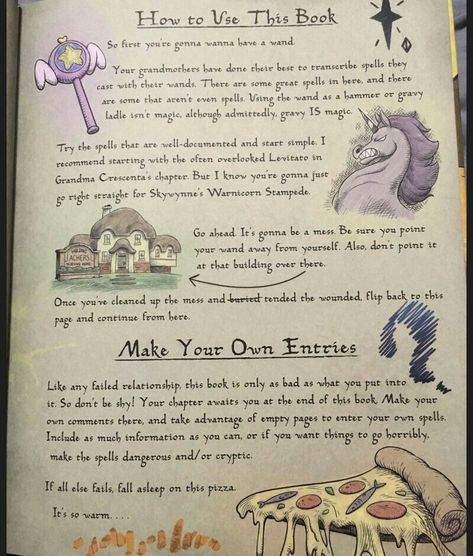 How to Use This Book
So first you're gonna wanna have a wand.
Your grandmothers have done their best to transcribe spells they
cast with their wands. There are some great spells in here, and there
are some that aren't even spells. Using the wand as a hammer or gravy
ladle isn't magic, although admittedly, gravy IS magic.
Try the spells that are well-documented and start simple. I
recommend starting with the often overlooked Levitato in
Grandma Crescenta's chapter. But I know you're gonna just
go right straight for Skywynne's Warnicorn Stampede.
Go ahead. It's gonna be a mess. Be sure you point
your wand away from yourself. Also, don't point it
at that building over there.
ACHERS
Once you've cleaned up the mess and buried tended the wounded, flip back to this
page and continue from here.
Make Your Own Entries
Like any failed relationship, this book is only as bad as what you put into
it. So don't be shy! Your chapter awaits you at the end of this book. Make your
own comments there, and take advantage of empty pages to enter your own spells.
Include as much information as you can, or if you want things to go horribly,
make the spells dangerous and/or cryptic.
If all else fails, fall asleep on this pizza.
It's so warm. . . .